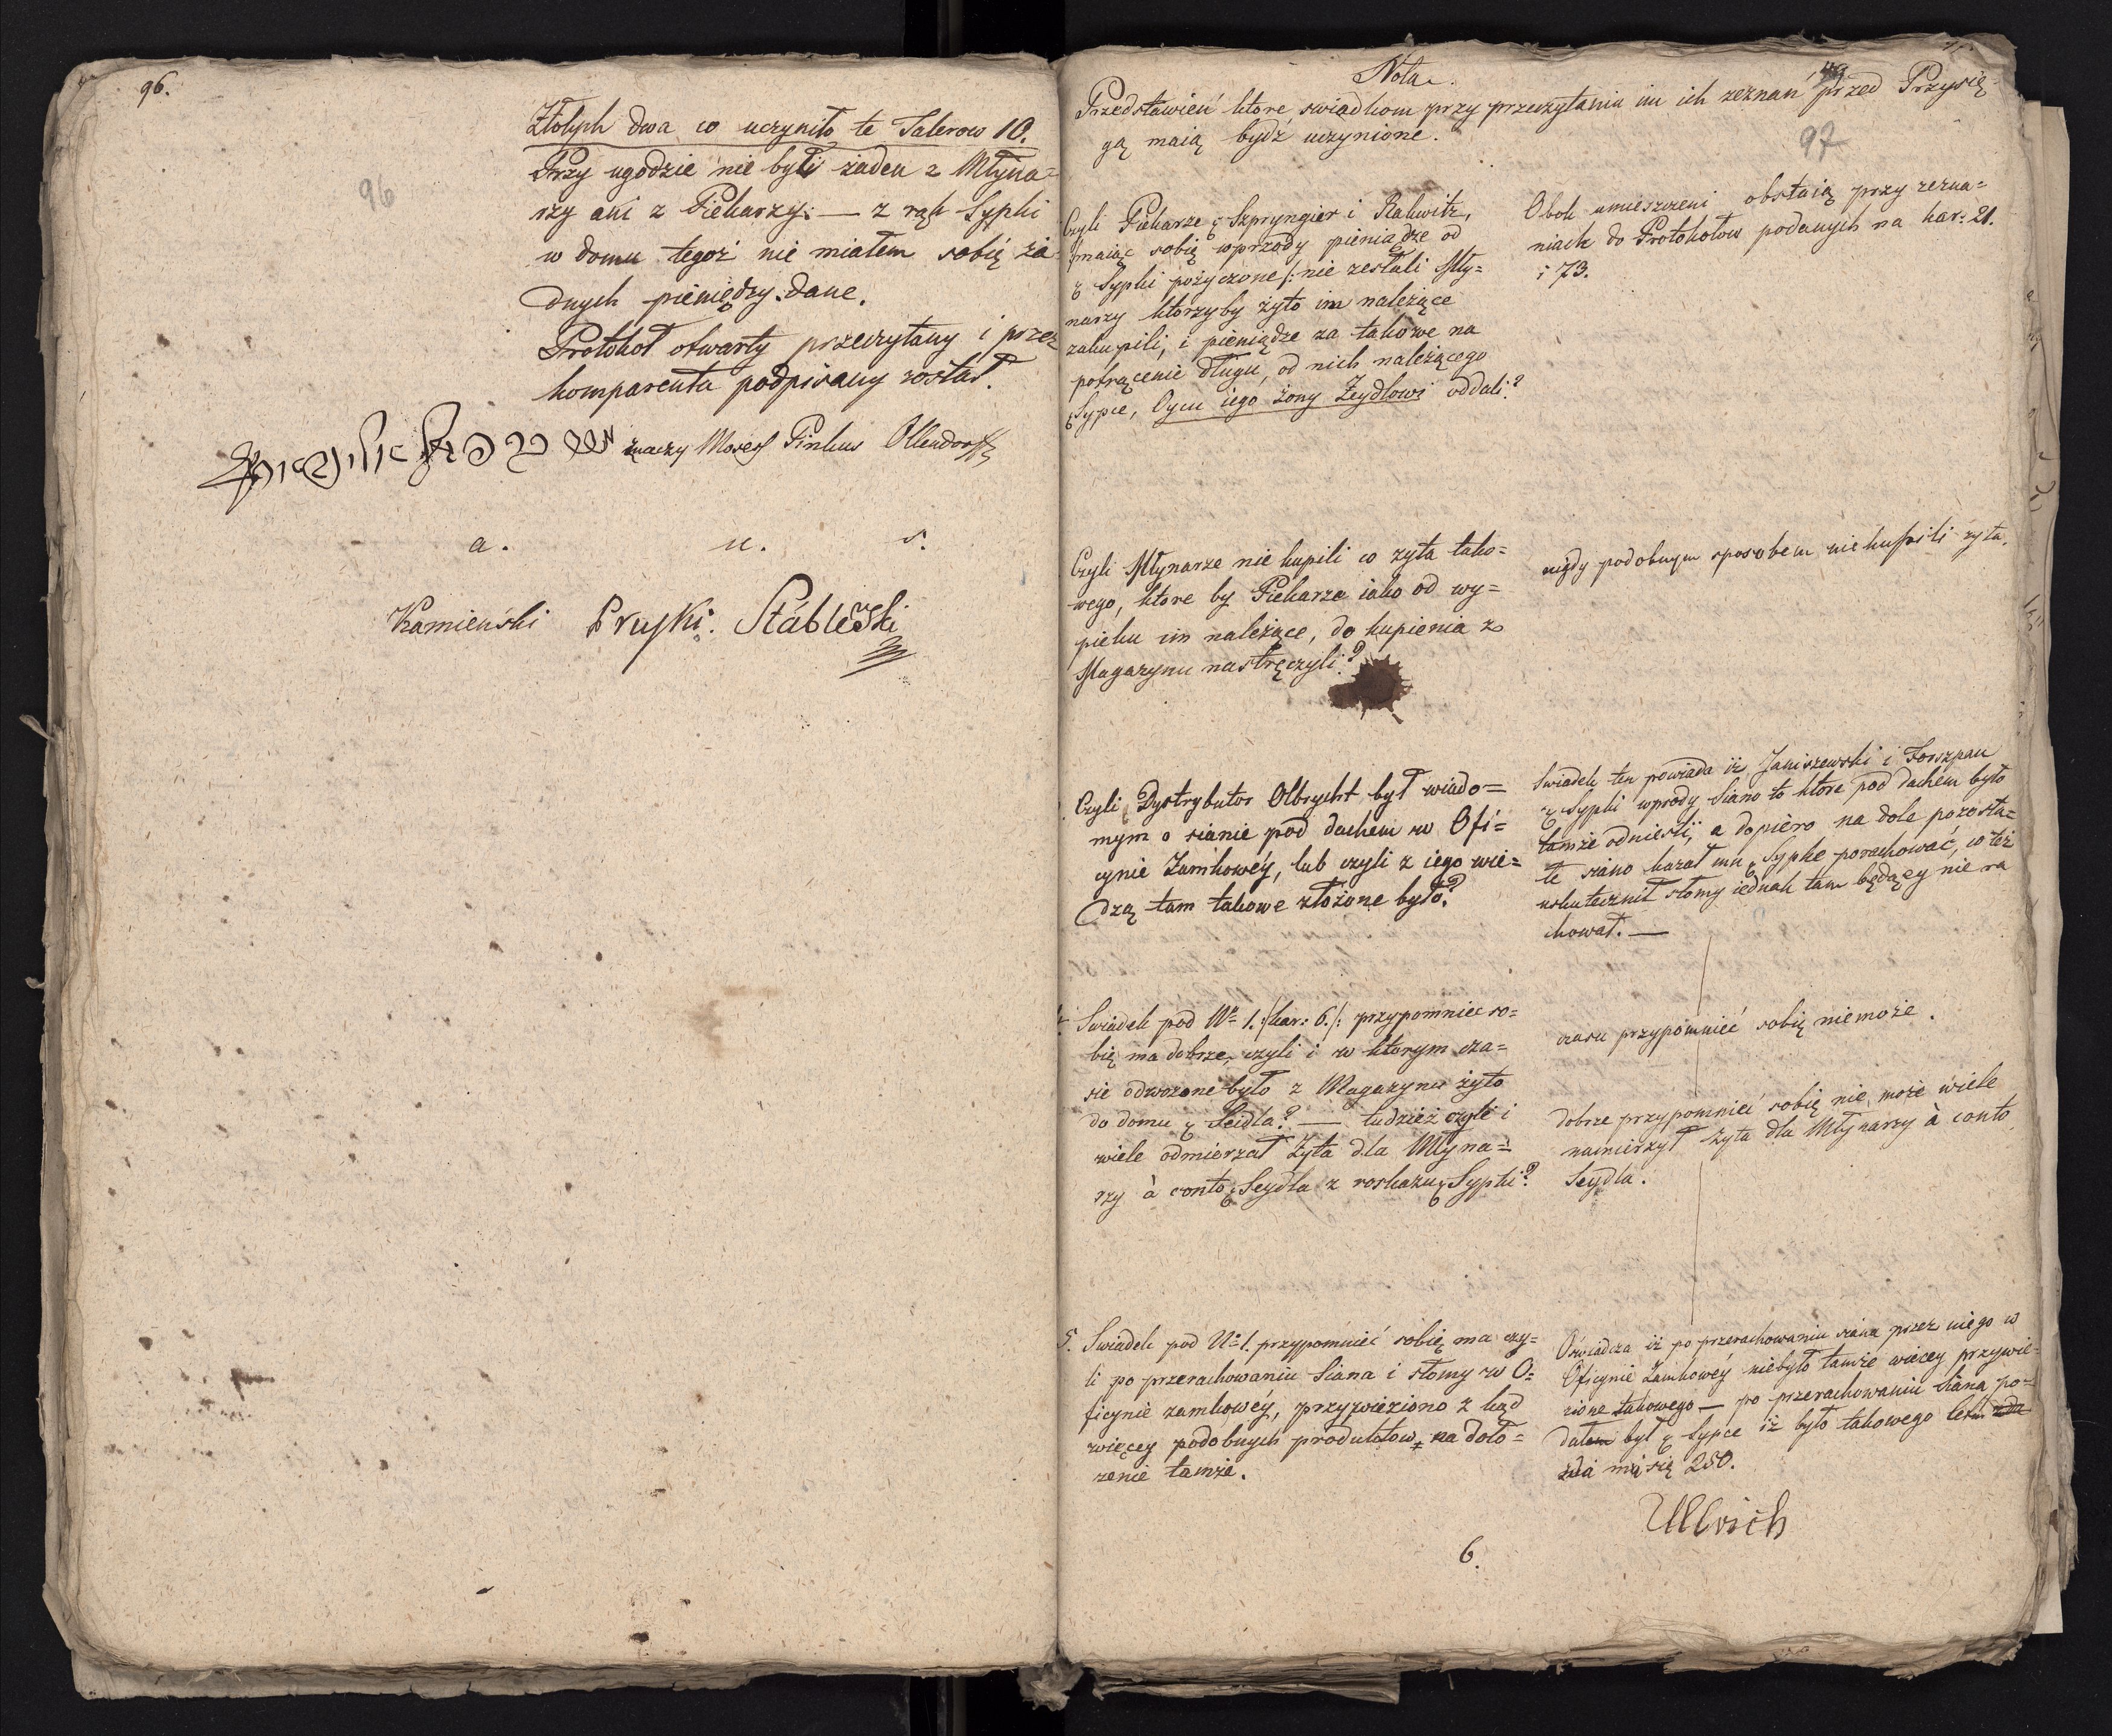 96.
96
Złotych dwa co uczyniło te Talerow 10.
Przy ugodzie nie byłi żaden z Młyna=
rzy ani z Piekarzy: — z rąk Sypki
w domu tegoż nie miałem sobię ża=
dnych pieniędzy dane.
Protokoł otwarty przeczytany i przez
komparenta podpisany został.
znaczy Moses Pinkus Ollendorff
a. u. s.
Kamieński Pruski. Stáblewski
Nota.
49
Przedstawień które swiadkom przy przeczytaniu im ich zeznań przed Przysię=
gą maią bydź uczynione.
97
Czyli Piekarze Szpryngier i Rakwitz,
/:maiąc sobię wprzody pieniądze od
Sypki pożyczone/: nie zesłali Mły=
narzy ktorzyby żyto im należące
zakupili, i pieniądze za takowe na
potrącenie długu, od nich należącego
Sypce, Oycu iego żony Zeydlowi oddali?
Obok umieszczeni obstaią przy zezna=
niach do Protokołow podanych na kar: 21.
i 73.
Czyli Młynarze nie kupili co zyta tako=
wego, ktore by Piekarze iako od wy=
pieku im należące, do kupienia z
Magazynu nastręczyli?
nigdy podobnym sposobem nie kupili zyta.
Czyli Dystrybutor Olbrycht był wiado=
mym o sianie pod dachem w Ofi=
cynie Zamkowéy, lub czyli z iego wie=
dzą tam takowe złożone było?
Swiadek ten powiada iż Janiszewski i Forszpan
Sypki wprody Siano to ktore pod dachem było
tamże odniesli, a dopiero na dole pozosta=
łe siano kazał mu Sypke porachować, co też
uskutecznił słomy iednak tam będącey nie ra
chował. —
Swiadek pod No 1. :/kar: 6./: przypomniec so=
bię ma dobrze, czyli i w ktorym cza=
sie odwożone było z Magazynu żyto
do domu Seidla? — tudzież czyli i
wiele odmierzał Zyta dla Młyna=
rzy à conto Seydla z roskazu Sypki?
czasu przypomnieć sobię niemoże.
dobrze przypomnieć sobię nie może wiele
namierzył żyta dla Młynarzy à conto
Seydla.
5. Swiadek pod No 1. przypomnieć sobię ma czy=
li po przerachowaniu Siana i słomy w O=
ficynie zamkowéy, przywieziono z kąd
więcey podobnych produktow, na doło=
żenie tamże.
Oświadcza iż po przerachowaniu siana przez niego w
Oficynie Zamkowéy niebyło tamże więcey przywie=
zione takowego — po przerachowaniu Siana po=
dałem był Sypce iż było takowego
zda mi się 250.
Ullrich
6.